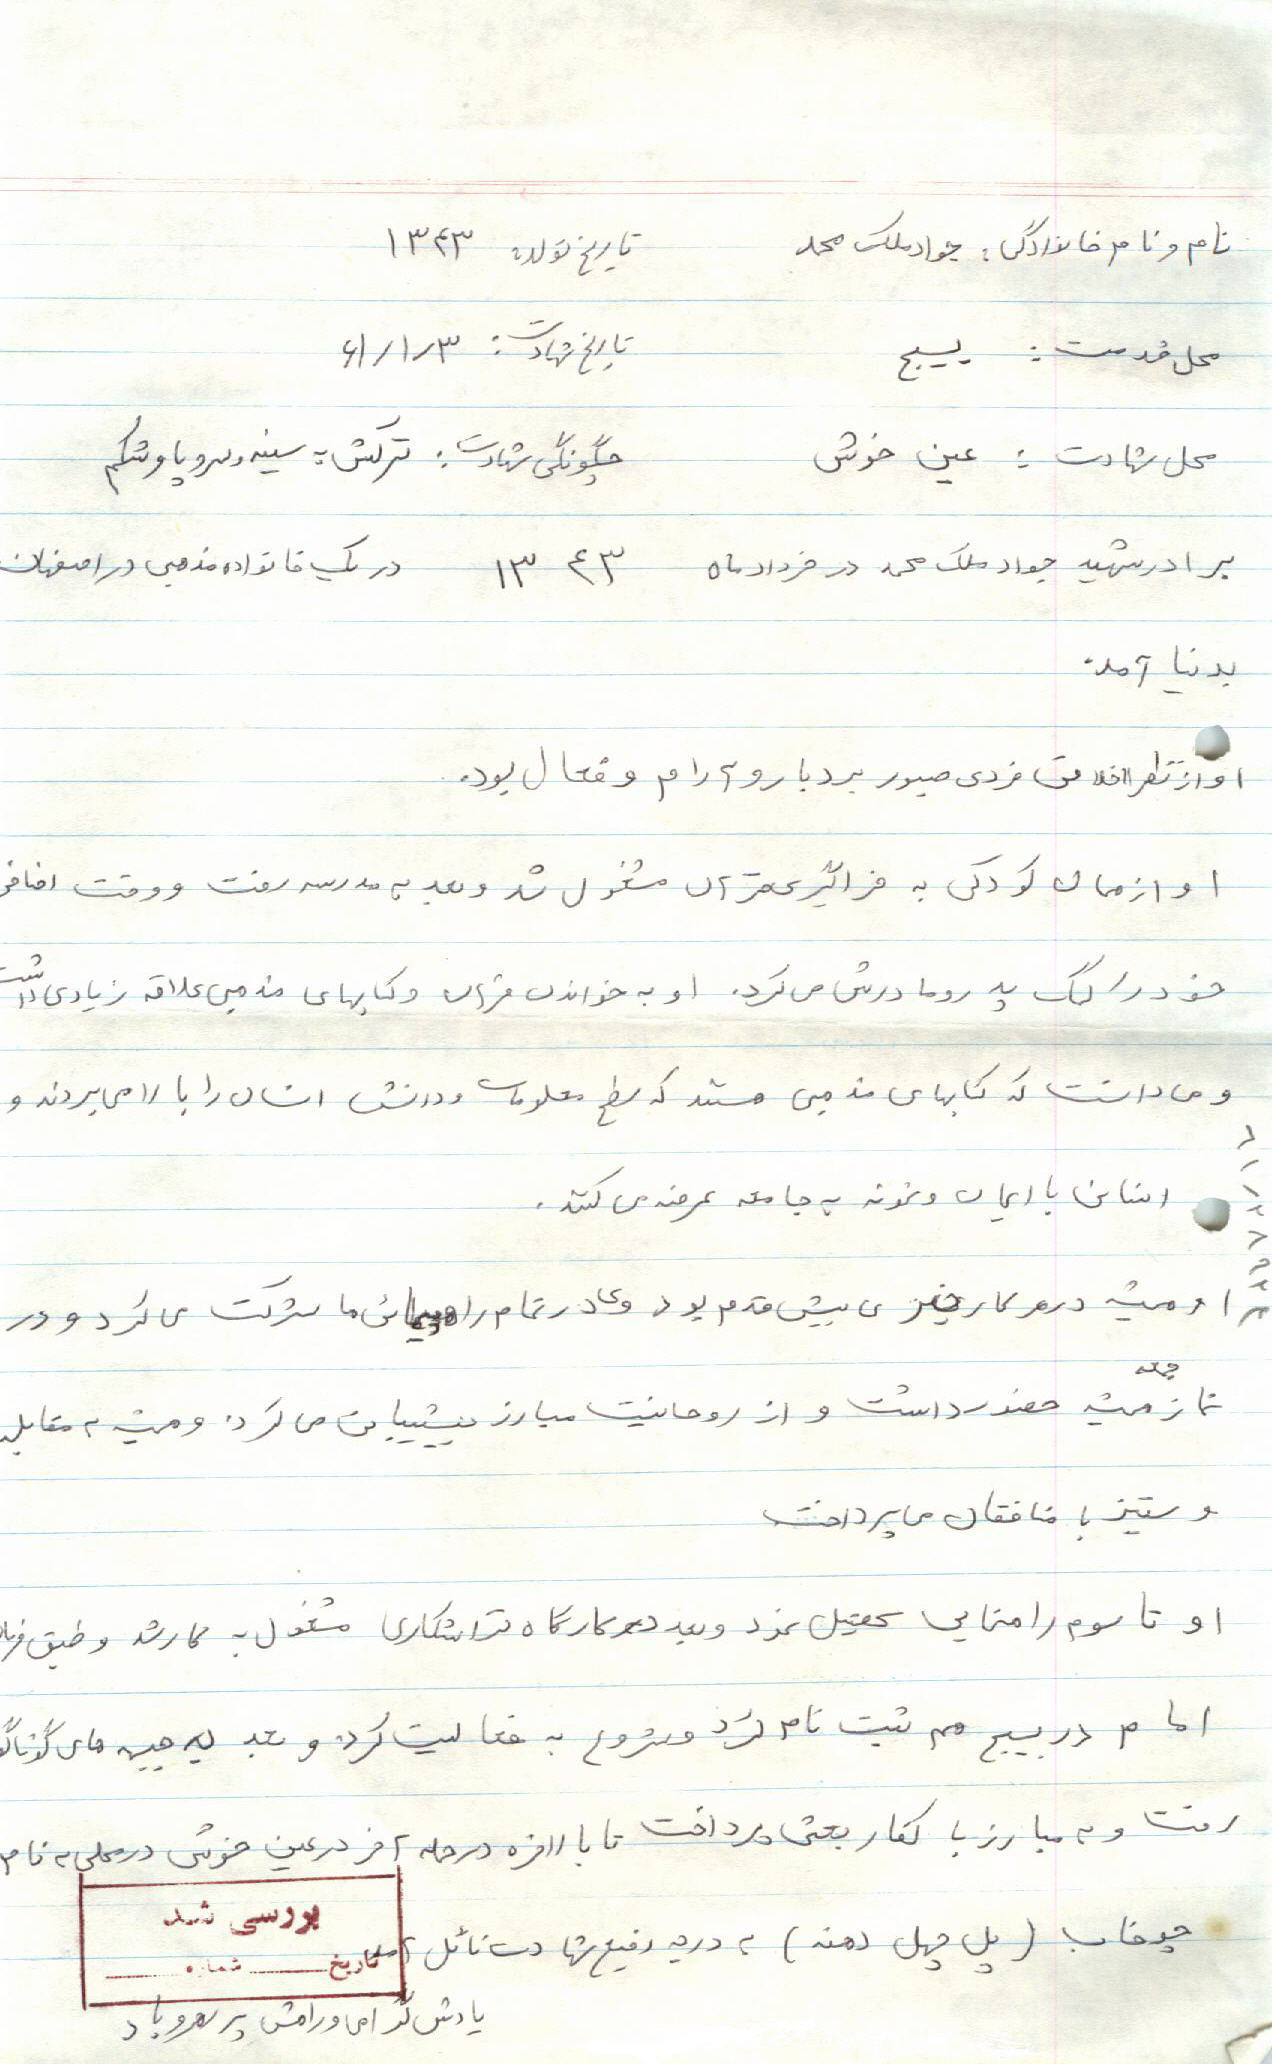 نام و نام خانوادگی: جواد ملک محمد تاریخ تولد: ۱۳۴۳
محل خدمت: بسیج تاریخ شهادت: ۶۱/۱/۳
محل شهادت: عین خوش چگونگی شهادت: ترکش به سینه و سر و پا و شکم
برادر شهید جواد ملک محمد در خرداد ماه ۱۳۴۳ در یک خانواده مذهبی در اصفهان
بدنیا آمد.
او از نظر اخلاقی فردی صبور بردبار و آرام و فعال بود.
او از همان کودکی به فراگیری قرآن مشغول شد و بعد به مدرسه رفت و وقت اضافی
خود را کمک پدر و مادرش می کرد. او به خواندن قرآن و کتابهای مذهبی علاقه زیادی داشت
و می دانست که کتابهای مذهبی هستند که سطح معلومات و دانش انسان را بالا می بردند و
انسانی با ایمان و نمونه به جامعه عرضه می کنند.
او همیشه در هر کار خیری پیش قدم بود و در تمام راهپیمائی ها شرکت می کرد و در
نماز جمعه همیشه حضور داشت و از روحانیت مبارز پیشیبانی می کرد. و همیشه به مقابله
و ستیز با منافقان می پرداخت
او تا سوم راهنمایی تحصیل نمود و بعد در کارگاه تراشکاری مشغول به کار شد و طبق فرمان
امام در بسیج هم ثبت نام کرد و شروع به فعالیت کرد. و بعد به جبهه های گوناگون
رفت و به مبارزه با کفار بعثی پرداخت تا بالاخره در حمله آخر در عین خوش در محلی به نام
چوخاب (پل چهل دهنه) به درجه رفیع شهادت نائل آمد
بررسی شد
تاریخ شماره
یادش گرامی و راهش پر رهرو باد